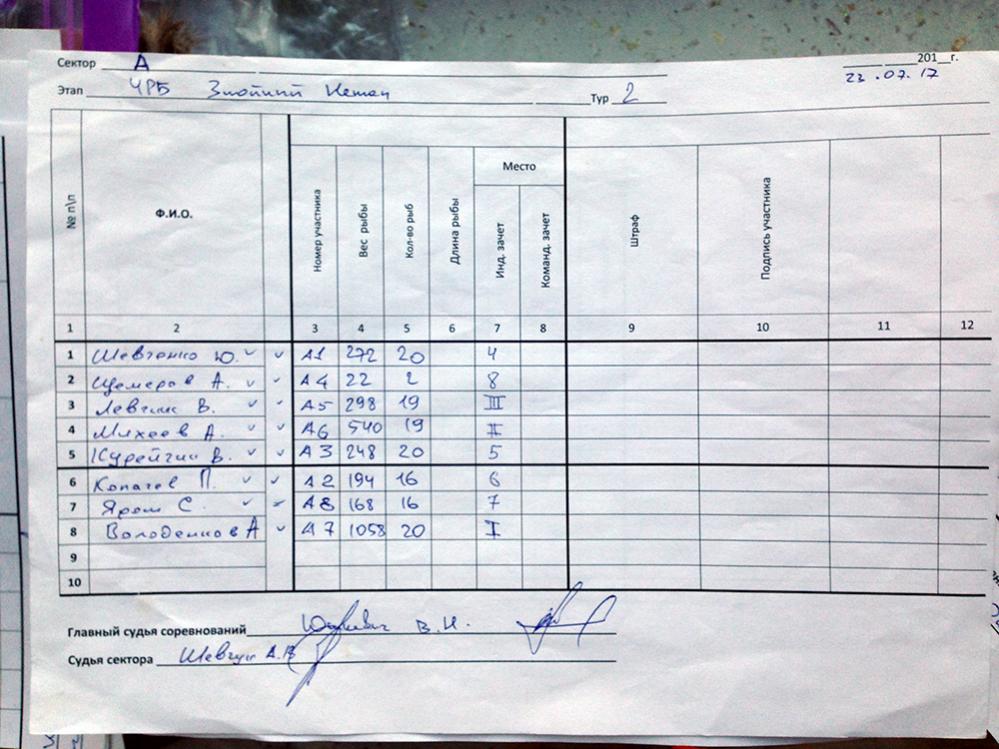 Сектор А
201_ г.
23.07.17
Этап ЧРБ Знойный
Тур 2
№ п\п Ф.И.О. Номер участника Вес рыбы Кол-во рыб Длина рыбы Место Инд. зачет Команд. зачет Штраф Подпись участника
1 2 3 4 5 6 7 8 9 10 11 12
1 Шевченко Ю. А1 272 20 4
2 Щемеров А. А4 22 2 8
3 Левчик В. А5 298 19 III
4 Михеев А. А6 540 19 II
5 Курейчик В. А3 248 20 5
6 Копачев П. А2 194 16 6
7 Яром С. А8 168 16 7
8 Володенков А А7 1058 20 I
9
10
Главный судья соревнований Юркевич В.И.
Судья сектора Шевчук А.В